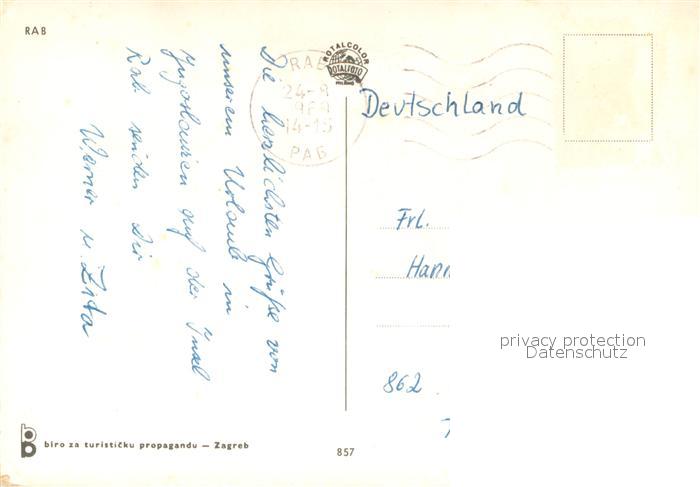 RAB
Die herzlichsten Grüße von
unserem Urlaub in
Jugoslawien auf der Insel
Rab senden Dir
Werner u. Zita
ROTALCOLOR
ROTALFOTO
RAB
24-9
14-15
РАБ
Deutschland
Frl.
Hann
862
privacy protection
Datenschutz
biro za turističku propagandu — Zagreb
857